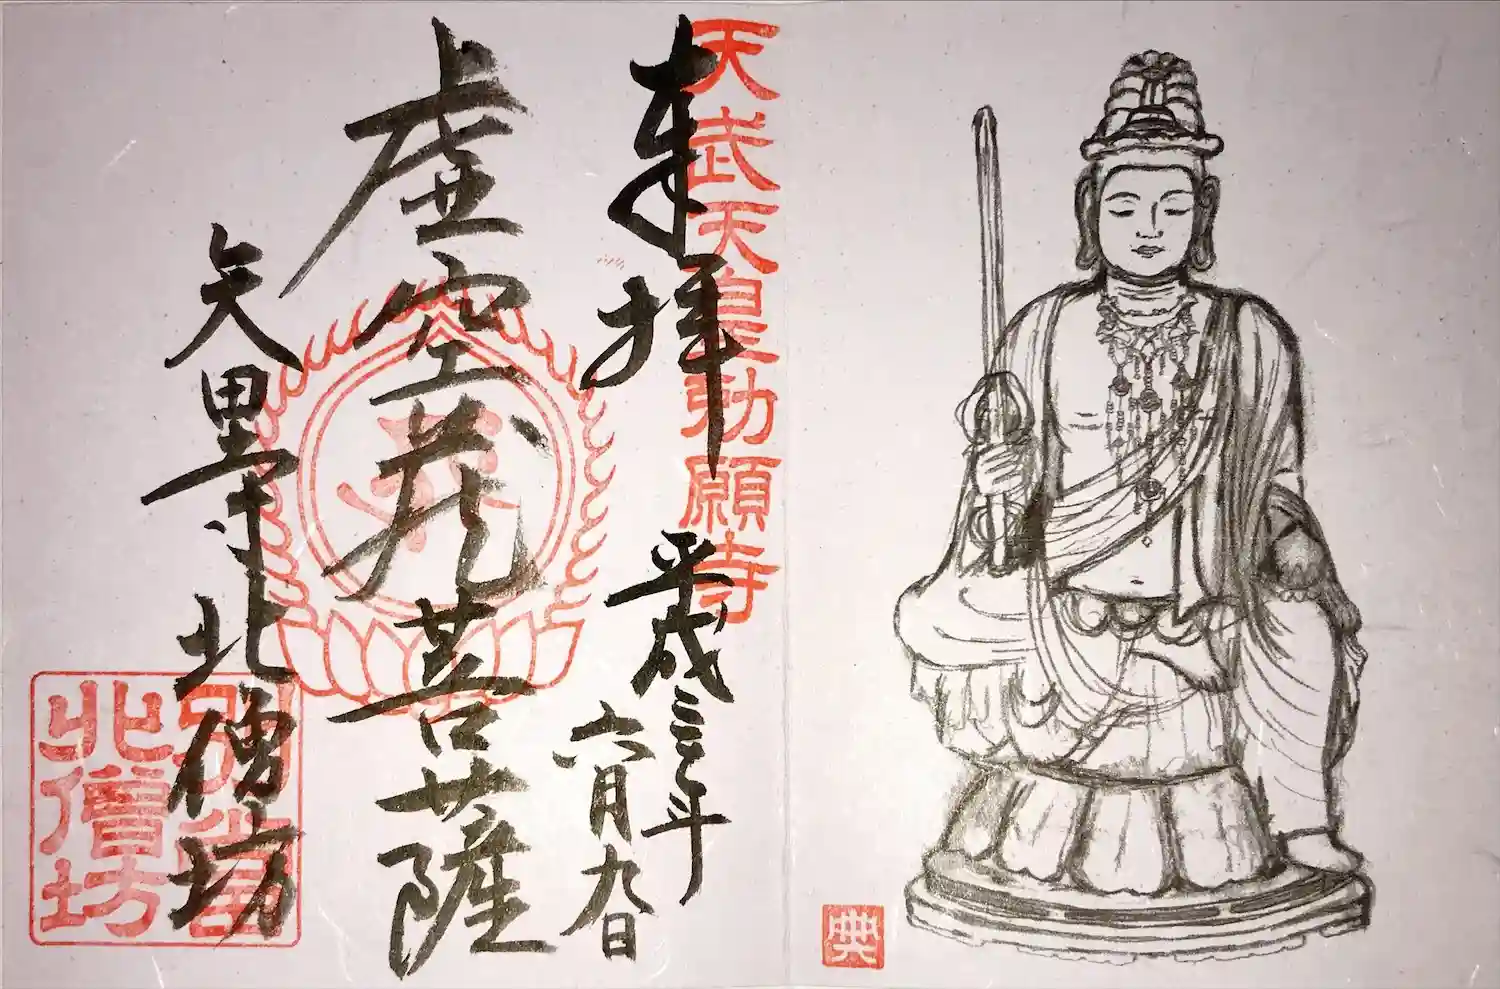 天武天皇勅願寺
奉拝
平成三〇年
六月九日
虚空蔵菩薩
矢田寺北僧坊
別當
北僧坊
典